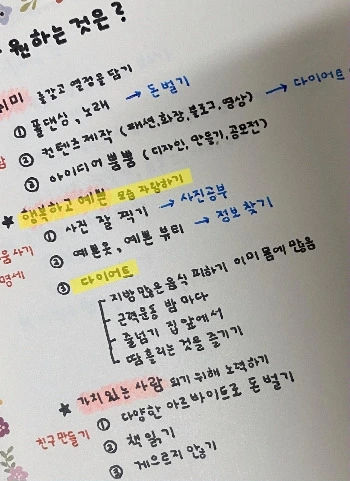 원하는 것은?
취미 즐기고 열정을 담기
① 폴댄싱, 노래 → 돈 벌기
② 컨텐츠제작 (패션, 화장, 블로그, 영상) → 다이어트
③ 아이디어 뿜뿜 (디자인, 만들기, 공모전)
★ 행복하고 예쁜 모습 자랑하기
① 사진 잘 찍기 → 사진공부
움사기 ② 예쁜옷, 예쁜 뷰티 → 정보 찾기
명세 ③ 다이어트
지방 많은 음식 피하기 이미 몸에 많음
근력운동 밤마다
줄넘기 집 앞에서
땀흘리는 것을 즐기기
★ 가치 있는 사람 되기 위해 노력하기
① 다양한 아르바이트로 돈 벌기
친구만들기 ② 책 읽기
③ 게으르지 않기